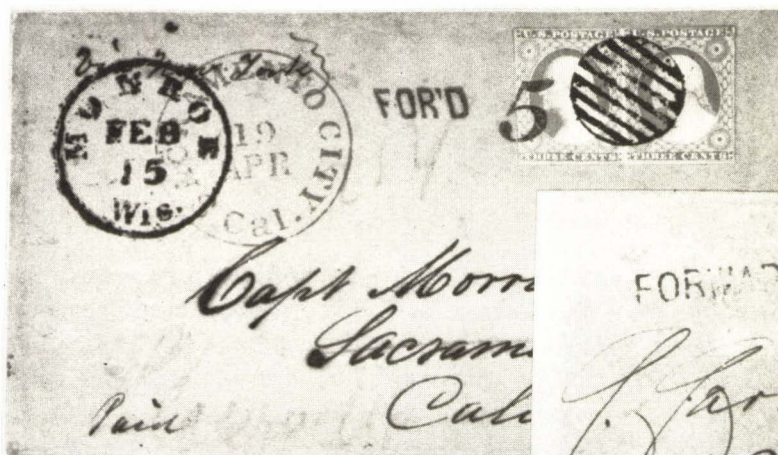 via New York
MONROE
FEB
15
Wis.
CITY.
19
APR
Cal.
FOR'D
5
U.S. POSTAGE U.S. POSTAGE
THREE CENTS THREE CENTS
Capt Morri
Sacram
Cali
Paid
FORWAR